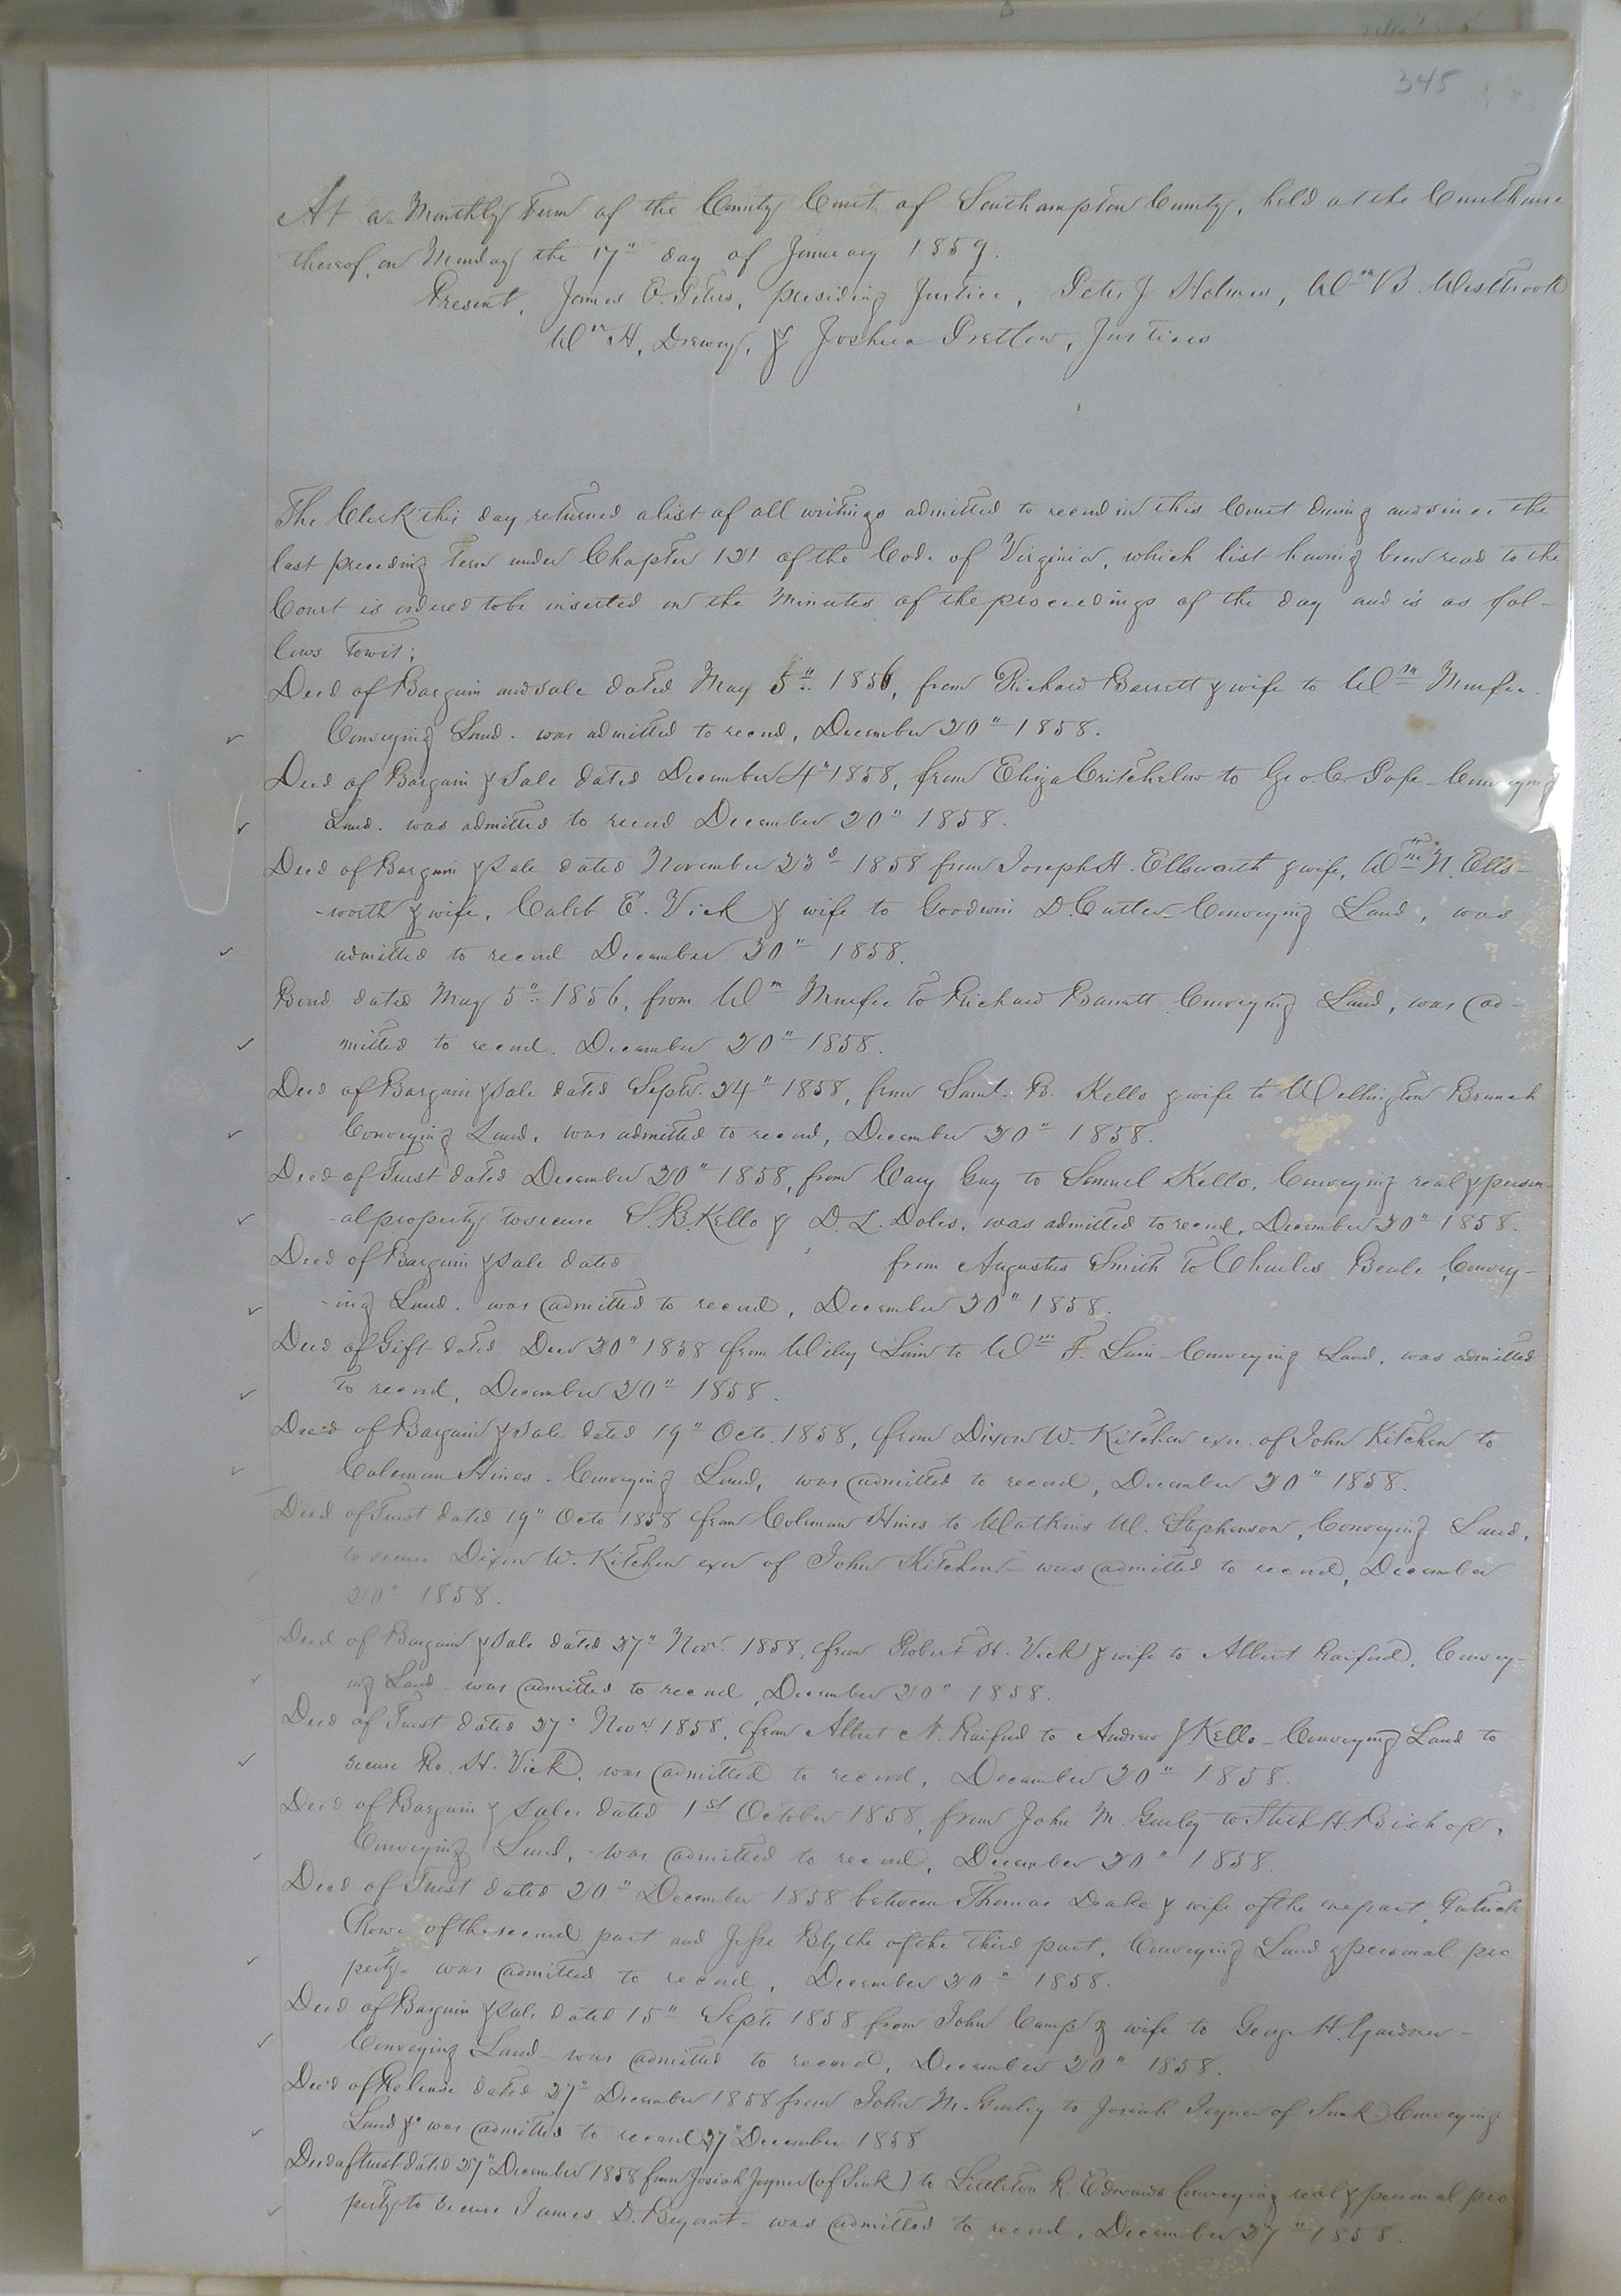 345
At a Monthly Term of the County Court of Southampton County, held at the Courthouse
thereof, on Monday the 17" day of January 1859.
Present, James E. Peters, presiding Justice, Peter J Holmes, Wm B Westbrook
Wm H. Drewry, & Joshua Pretlow, Justices
The Clerk this day returned a list of all writings admitted to record in this Court during and since the
last preceding Term under Chapter 121 of the Code of Virginia, which list having been read to the
Court is ordered to be inserted on the Minutes of the proceedings of the day and is as fol-
lows Towit;
Deed of Bargain and sale dated May 5" 1856, from Richard Barrett & wife to Wm Murfee
Conveying Land. was admitted to record, December 20" 1858.
Deed of Bargain & Sale dated December 4" 1858, from Eliza Critchelow to Geo. C. Pope Conveying
Land. was admitted to record December 20" 1858.
Deed of Bargain & Sale dated November 23d 1858 from Joseph H. Ellsworth & wife, Wm N. Ells-
-worth & wife, Caleb E. Vick & wife to Goodwin D. Cutler Conveying Land, was
admitted to record December 20" 1858.
Bond dated May 5" 1856, from Wm Murfee to Richard Barratt Conveying Land, was ad-
mitted to record. December 20" 1858.
Deed of Bargain & Sale dated Septr. 24" 1858, from Saml. B. Kello & wife to Wellington Branch
Conveying Land, was admitted to record, December 20" 1858.
Deed of Trust dated December 20" 1858, from Cary Guy to Samuel Kello, Conveying real & person-
-al property to secure S. B. Kello & D. L. Doles, was admitted to record, December 20" 1858.
Deed of Bargain & Sale dated from Augustus Smith to Charles Beale Convey-
-ing Land. was admitted to record, December 20" 1858.
Deed of Gift dated Decr 20" 1858 from Wiley Lain to Wm F. Lain Conveying Land, was admitted
to record, December 20" 1858.
Deed of Bargain & Sale dated 19" Octo. 1858, from Dixon W. Kitchen exr. of John Kitchen to
Coleman Hines. Conveying Land, was admitted to record, December 20" 1858.
Deed of Trust dated 19" Octo 1858 from Coleman Hines to Watkins W. Stephenson, Conveying Land,
to secure Dixon W. Kitchen exor of John Kitchen - was admitted to record, December
20" 1858.
Deed of Bargain & Sale dated 27" Novr. 1858, from Robert H. Vick & wife to Albert Raiford, Convey-
ing Land was admitted to record, December 20" 1858.
Deed of Trust dated 27" Novr 1858, from Albert N. Raiford to Andrew J Kello - Conveying Land to
secure Ro. H. Vick, was admitted to record, December 20" 1858.
Deed of Bargain & Sale dated 1st October 1858, from John M. Gurley to H. Bishop,
Conveying Land, was admitted to record, December 20" 1858.
Deed of Trust dated 20" December 1858 between Thomas Drake & wife of the one part, Patrick
Rowe of the second part and Jesse Blythe of the third part, Conveying Land & personal pro
perty - was admitted to record, December 20" 1858.
Deed of Bargain & Sale dated 15" Septr 1858 from John Camp & wife to George H. Gardner -
Conveying Land - was admitted to record, December 20" 1858.
Deed of Release dated 27" December 1858 from John M. Gurley to Josiah Joyner of Conveying
Land &c was admitted to record 27" December 1858
Deed of trust dated 27" December 1858 from Josiah Joyner to Littleton R. Edwards Conveying real & personal pro
perty to secure James D. Bryant - was admitted to record, December 27" 1858.